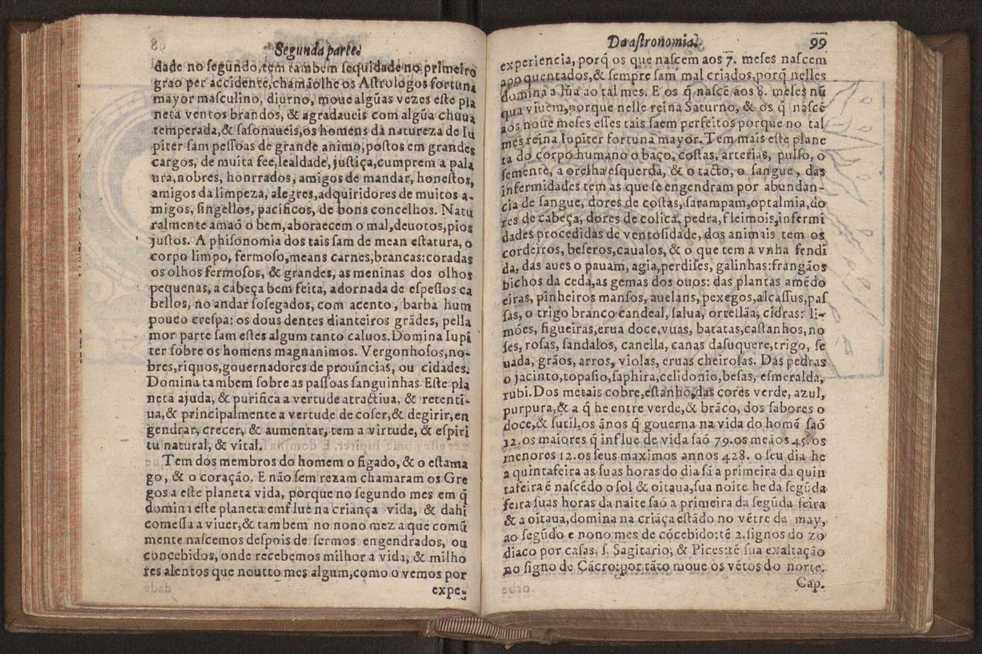 Segunda parte
dade no segundo, tem tambem sequidade no primeiro
grao per accidente, chamãolhe os Astrologos fortuna
mayor masculino, diurno, moue algũas vezes este pla
neta ventos brandos, & agradaueis com algũa chuua
temperada, & sasonaueis, os homens da natureza de Iu
piter sam pessoas de grande animo, postos em grandes
cargos, de muita fee, lealdade, justiça, cumprem a pala
ura, nobres, honrrados, amigos de mandar, honestos,
amigos da limpeza, alegres, adquiridores de muitos a-
migos, singellos, pacificos, de bons concelhos. Natu
ralmente amaõ o bem, aboraecem o mal, deuotos, pios
justos. A phisonomia dos tais sam de mean estatura, o
corpo limpo, fermoso, means carnes, brancas: coradas
os olhos fermosos, & grandes, as meninas dos olhos
pequenas, a cabeça bem feita, adornada de espessos ca
bellos, no andar sosegados, com acento, barba hum
pouco crespa: os dous dentes dianteiros grãdes, pella
mor parte sam estes algum tanto caluos. Domina Iupi
ter sobre os homens magnanimos. Vergonhosos, no-
bres, riquos, gouernadores de prouincias, ou cidades.
Domina tambem sobre as passoas sanguinhas Este pla
neta ajuda, & purifica a vertude atractiua, & retenti-
ua, & principalmente a vertude de coser, & degirir, en
gendrar, crecer, & aumentar, tem a virtude, & espiri
tu natural, & vital.
Tem dos membros do homem o figado, & o estama
go, & o coração. E não sem rezam chamaram os Gre
gos a este planeta vida, porque no segundo mes em q̃
domina este planeta emfluè na criança vida, & dahi
comessa a viuer, & tambem no nono mez a que comũ
mente nascemos despois de sermos engendrados, ou
concebidos, onde recebemos milhor a vida, & milho
res alentos que noutto mes algum, como o vemos por
expe-
Da astronomia. 99
experiencia, porq̃ os que nascem aos 7. meses nascem
apoquentados, & sempre sam mal criados, porq̃ nelles
domina a Lũa ao tal mes. E os q̃ nascẽ aos 8. meses nũ
qua viuem, porque nelle reina Saturno, & os q̃ nascẽ
aos noue meses esses tais saem perfeitos porque no tal
mes reina Iupiter fortuna mayor. Tem mais este plane
ta do corpo humano o baço, costas, arterias, pulso, o
semente, a orelha esquerda, & o tacto, o sangue, das
infermidades tem as que se engendram por abundan-
cia de sangue, dores de costas, sarampam, optalmia, do
res de cabeça, dores de colica, pedra, fleimois, infermi
dades procedidas de ventosidade, dos animais tem os
cordeiros, beseros, caualos, & o que tem a vnha fendi
da, das aues o pauam, agia, perdises, galinhas: frangãos
bichos da ceda, as gemas dos ouos: das plantas amẽdo
eiras, pinheiros mansos, auelans, pexegos, alcassus, pas
sas, o trigo branco candeal, salua, ortellãa, cidras: li-
mões, figueiras, erua doce, vuas, batatas, castanhos, no
ses, rosas, sandalos, canella, canas dasuquere, trigo, se
uada, grãos, arros, violas, eruas cheirosas. Das pedras
o jacinto, topasio, saphira, celidonio, besas, esmeralda,
rubi. Dos metais cobre, estanho, das cores verde, azul,
purpura, & a q̃ he entre verde, & brãco, dos sabores o
doce, & sutil, os ãnos q̃ gouerna na vida do homẽ saõ
12. os maiores q̃ influe de vida saõ 79. os meãos 45. os
menores 12. os seus maximos annos 428. o seu dia he
a quintafeira as suas horas do dia sã a primeira da quin
tafeira é nascẽdo o sol & oitaua, sua noite he da segũda
feira suas horas da naite saõ a primeira da segũda feira
& a oitaua, domina na criãça estãdo no vẽtre da may,
ao segũdo e nono mes de cõcebido: tẽ 2. signos do zo
diaco por casas, s. Sagitario, & Pices: tẽ sua exaltação
no signo de Cãcro: por tãto moue os vẽtos do norte.
Cap.